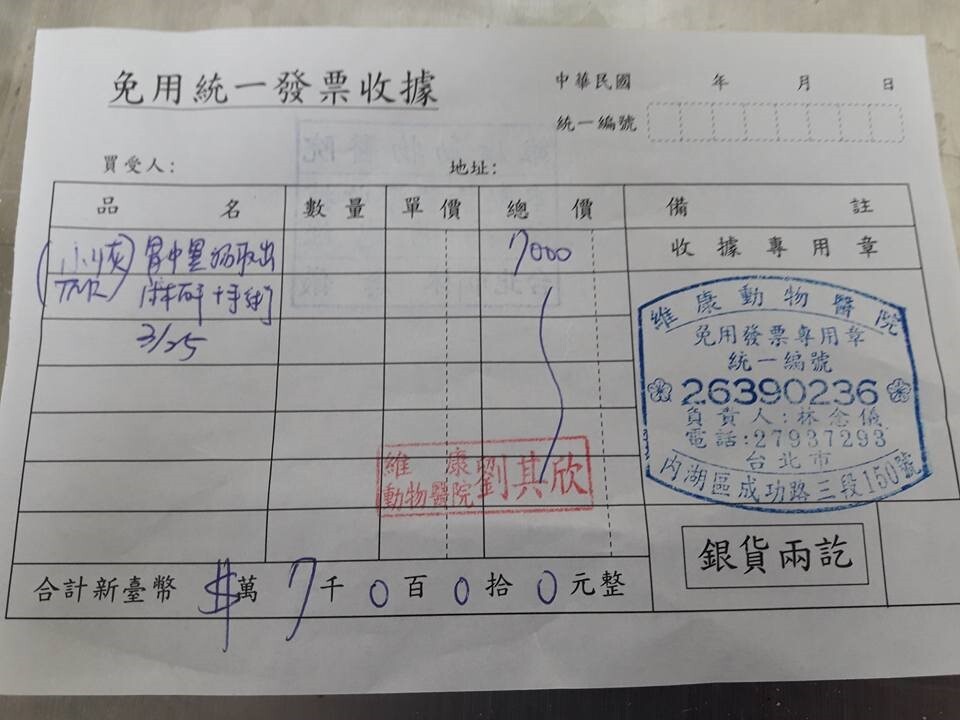 免用統一發票收據
中華民國 年 月 日
統一編號
買受人: 地址:
品名 數量 單價 總價 備註
(小灰 胃中異物取出 7000 收據專用章
手術
3/25
維康動物醫院
免用發票專用章
統一編號
26390236
負責人:林念儀
電話:27937293
台北市
內湖區成功路三段150號
維康
動物醫院 劉其欣
銀貨兩訖
合計新臺幣 $萬 7千 0百 0拾 0元整